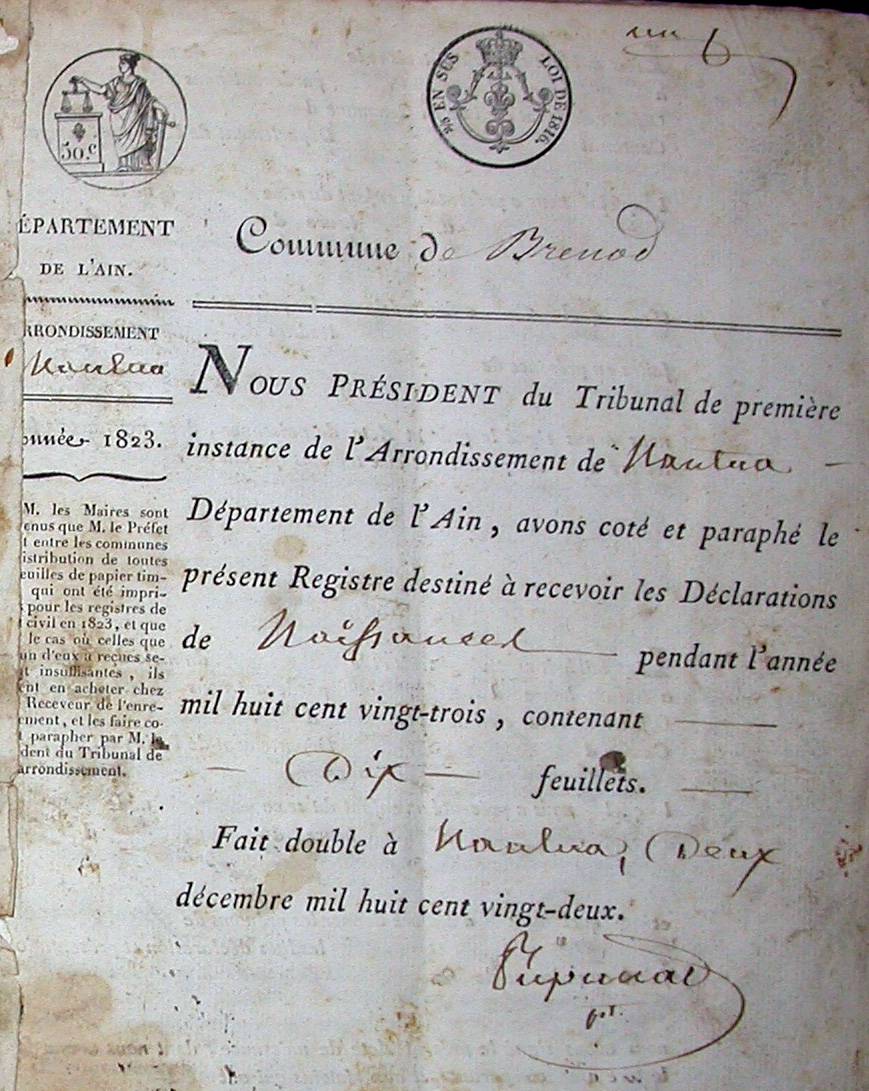 50.c
25 EN SUS LOI DE 1816.
ÉPARTEMENT
DE L'AIN.
RRONDISSEMENT
Nantua
nnée 1823.
M. les Maires sont
enus que M. le Préfet
t entre les communes
istribution de toutes
euilles de papier tim-
qui ont été impri-
pour les registres de
civil en 1823, et que
le cas où celles que
un d'eux a reçues se-
t insuffisantes, ils
ent en acheter chez
Receveur de l'enre-
ement, et les faire co-
t parapher par M. le
dent du Tribunal de
arrondissement.
Commune de Brenod
NOUS PRÉSIDENT du Tribunal de première
instance de l'Arrondissement de Nantua
Département de l'Ain, avons coté et paraphé le
présent Registre destiné à recevoir les Déclarations
de Naissances pendant l'année
mil huit cent vingt-trois, contenant
— Dix — feuillets.
Fait double à Nantua, Deux
décembre mil huit cent vingt-deux.